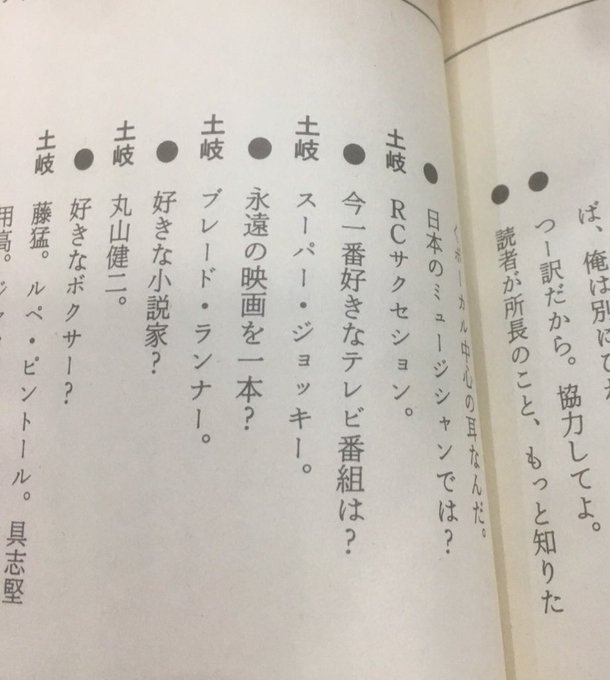 ば、俺は別に
● つー訳だから。協力してよ。
● 読者が所長のこと、もっと知りた
ボーカル中心の耳なんだ。
● 日本のミュージシャンでは?
土岐 RCサクセション。
● 今一番好きなテレビ番組は?
土岐 スーパー・ジョッキー。
● 永遠の映画を一本?
土岐 ブレード・ランナー。
● 好きな小説家?
土岐 丸山健二。
● 好きなボクサー?
土岐 藤猛。ルペ・ピントール。具志堅
用高。